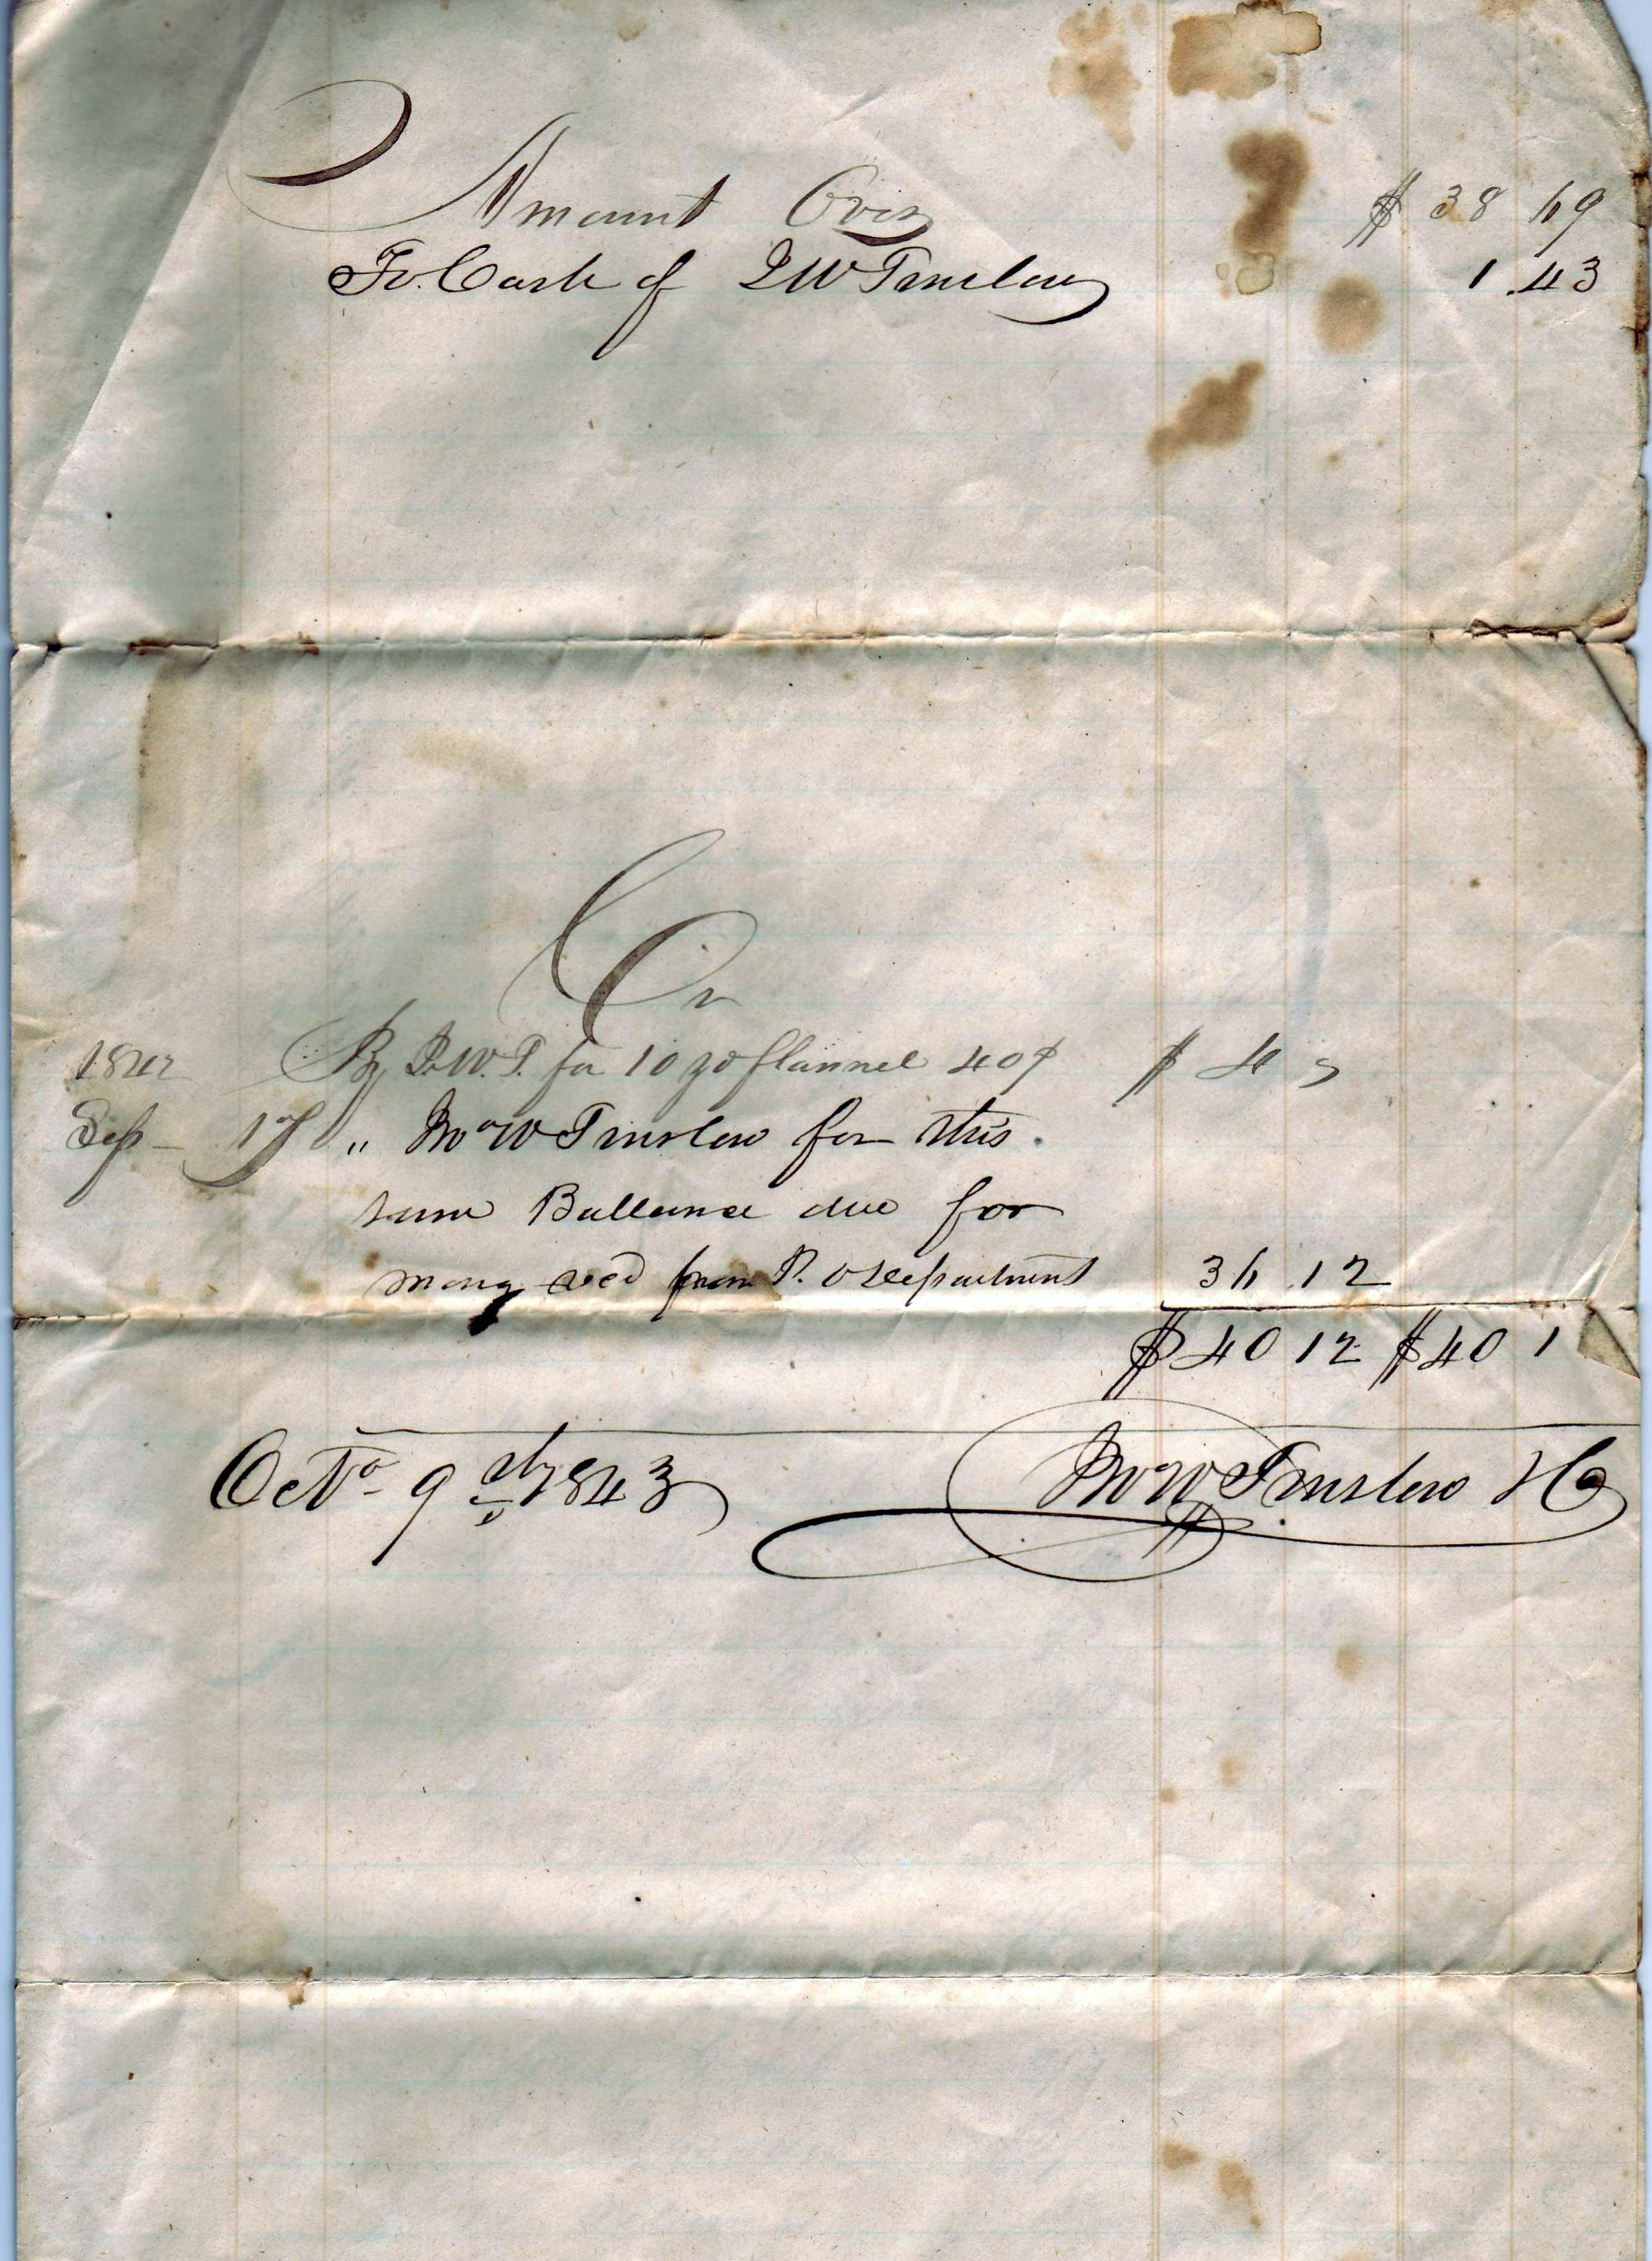 Amount Over $ 38 69
To Cash of W Tinslow 1.43
Cr
1842 By P.W.T. for 10 yd flannel 40¢ $ 4 "
Sep 17 " Jno W Tinslow for this
sum Ballance due for
money recd from P. O Department 36.12
$ 40 12 $ 40 1
Octo 9th 1843 Jno W Tinslow